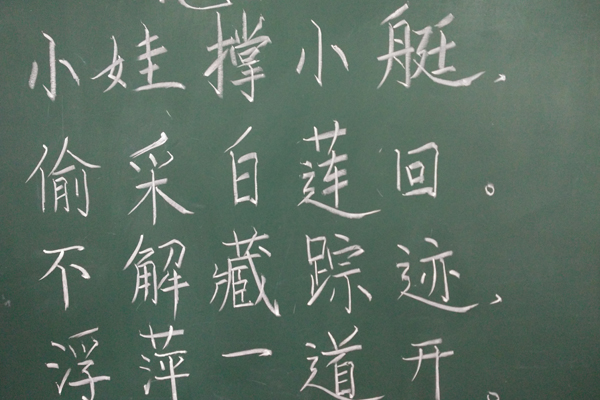 小娃撑小艇,
偷采白莲回。
不解藏踪迹,
浮萍一道开。